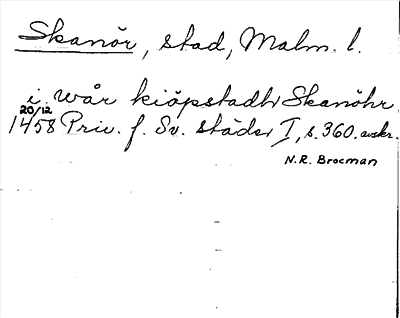 Skanör, stad, Malm. l.
i wår kiöpstadh Skanöhr
20/12
1458 Priv. f. Sv. städer I, s. 360. avskr.
N.R. Brocman